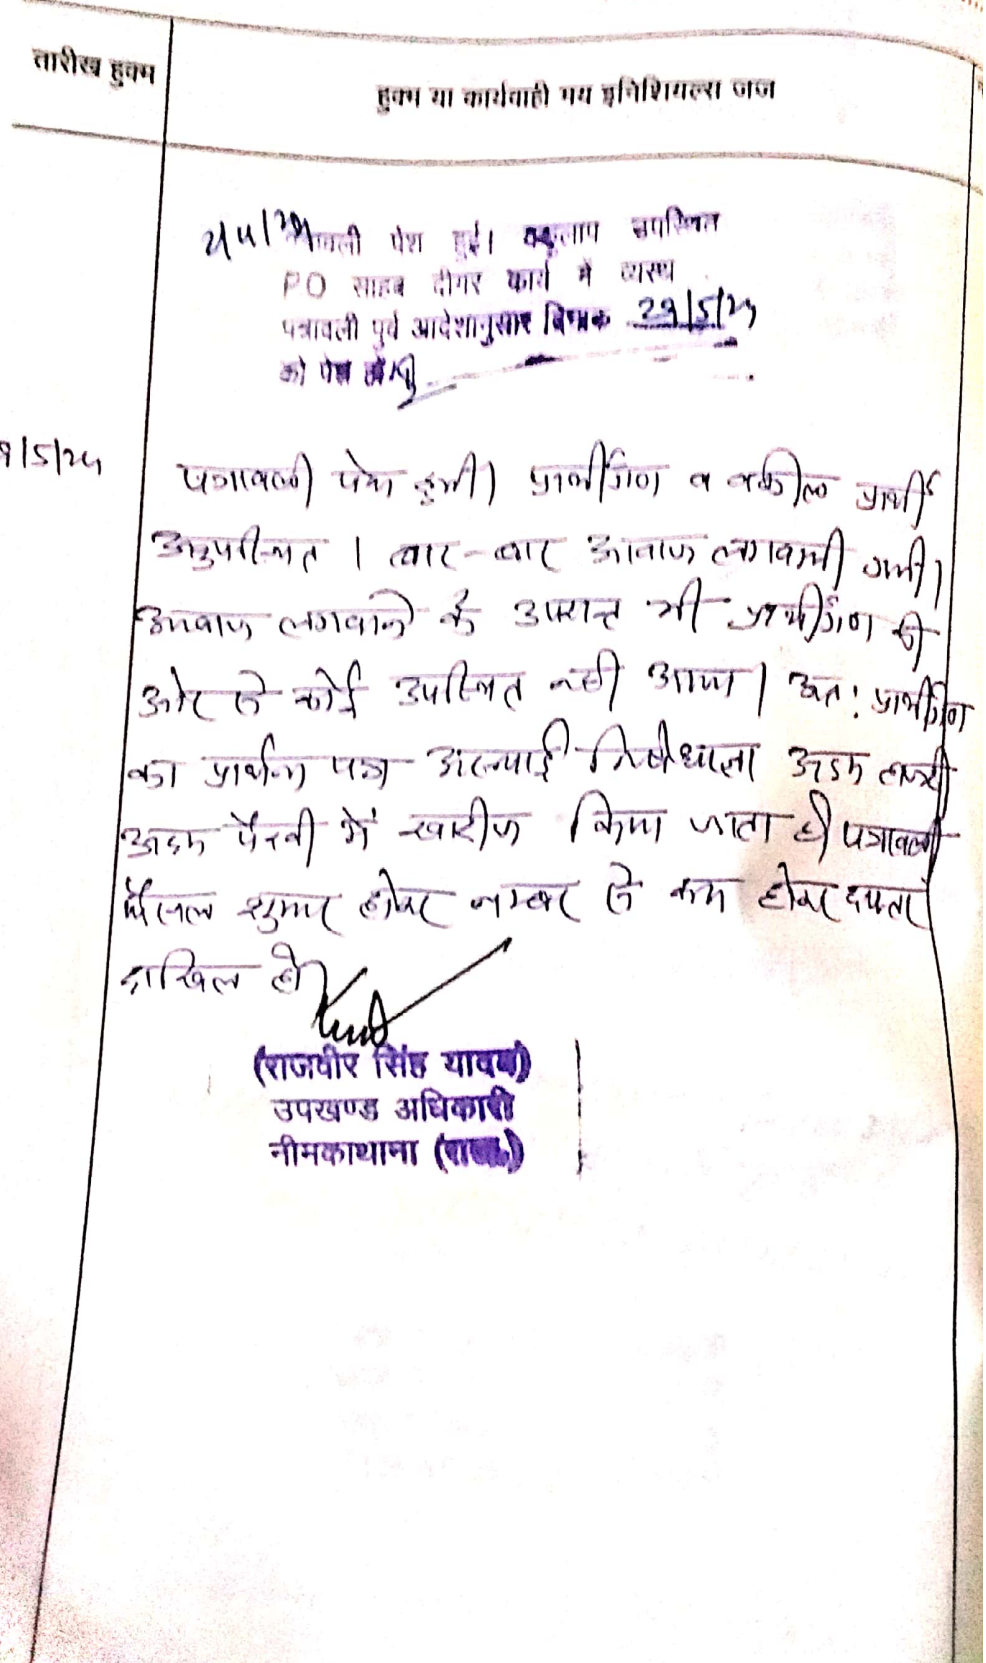 तारीख हुक्म
हुक्म या कार्यवाही मय इनिशियल्स जज
पेश हुई। उपस्थित
PO साहब दीगर कार्य में व्यस्थ
पत्रावली पुर्व आदेशानुसार दिनांक 29/5/24
को पेश हो।
9/5/24
पत्रावली पेश हुयी। प्रार्थीगण व वकील प्रार्थी
अनुपस्थित । बार-बार आवाज लगवायी गयी।
आवाज लगवाने के उपरान्त भी प्रार्थीगण की
ओर से कोई उपस्थित नही आया। अत: प्रार्थीगण
का प्रार्थना पत्र अस्थाई निषेधाज्ञा अदम हाजरी
अदम पैरवी में खारीज किया जाता है। पत्रावली
फैसल शुमार होकर नम्बर से कम होकर दफ्तर
दाखिल हो।
(राजवीर सिंह यादव)
उपखण्ड अधिकारी
नीमकाथाना (राज.)